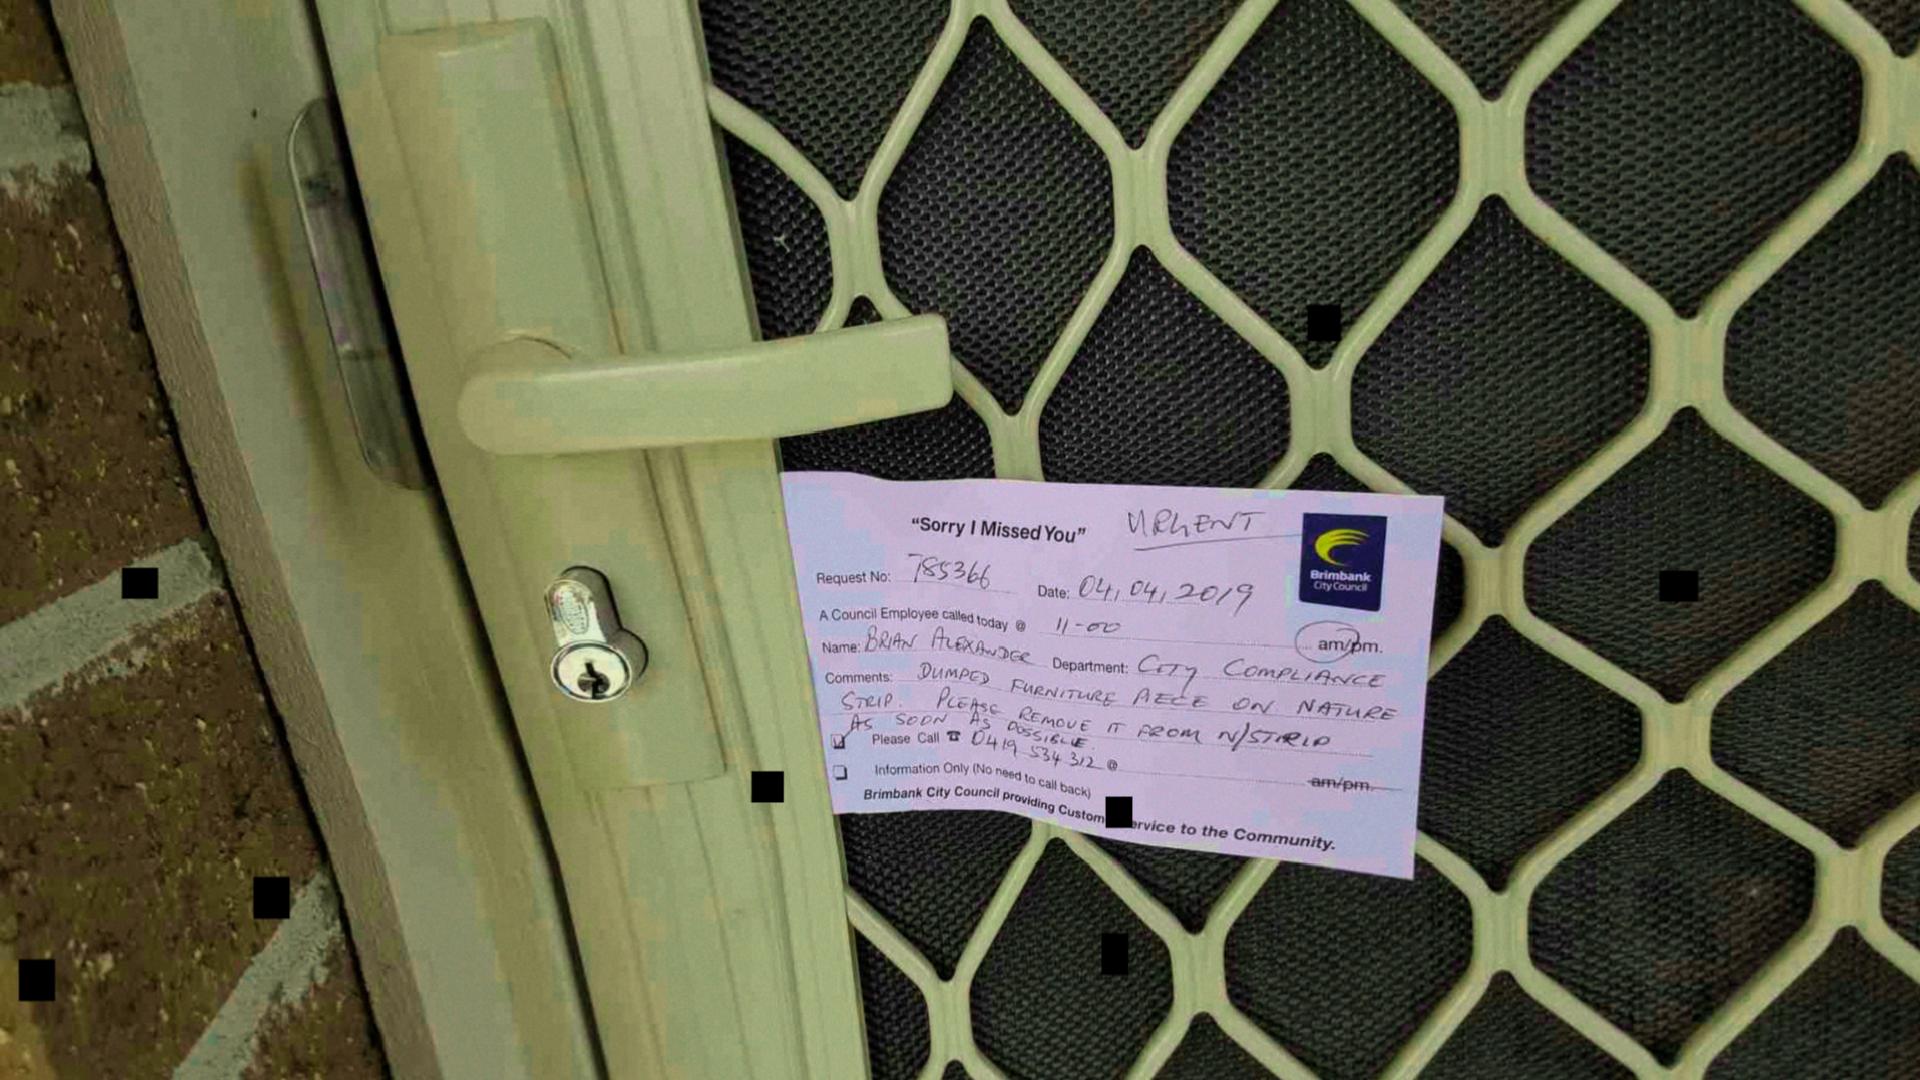 "Sorry I Missed You" URGENT
Brimbank
City Council
Request No: 785366 Date: 04,04,2019
A Council Employee called today @ 11-00 am/pm.
Name: BRIAN ALEXANDER Department: CITY COMPLIANCE
Comments: DUMPED FURNITURE PIECE ON NATURE
STRIP. PLEASE REMOVE IT FROM N/STRIP
AS SOON AS POSSIBLE.
Please Call ☎ 0419 534 312 @ am/pm.
Information Only (No need to call back)
Brimbank City Council providing to the Community.